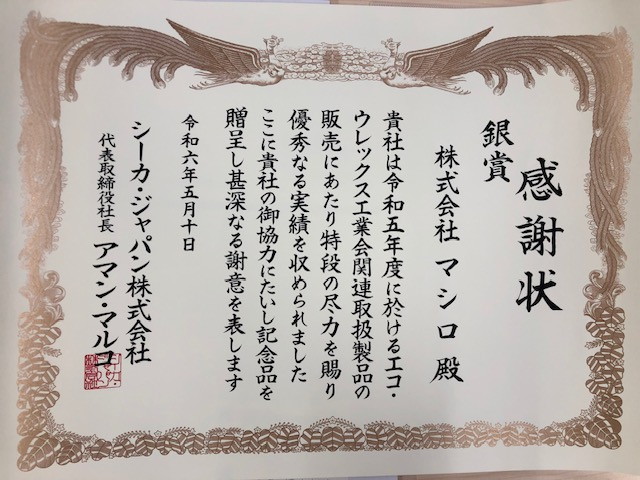 感謝状
銀賞
株式会社 マシロ 殿
貴社は令和五年度に於けるエコ・
ウレックス工業会関連取扱製品の
販売にあたり特段の尽力を賜り
優秀なる実績を収められました
ここに貴社の御協力にたいし記念品を
贈呈し甚深なる謝意を表します
令和六年五月十日
シーカ・ジャパン株式会社
代表取締役社長 アマン・マルコ